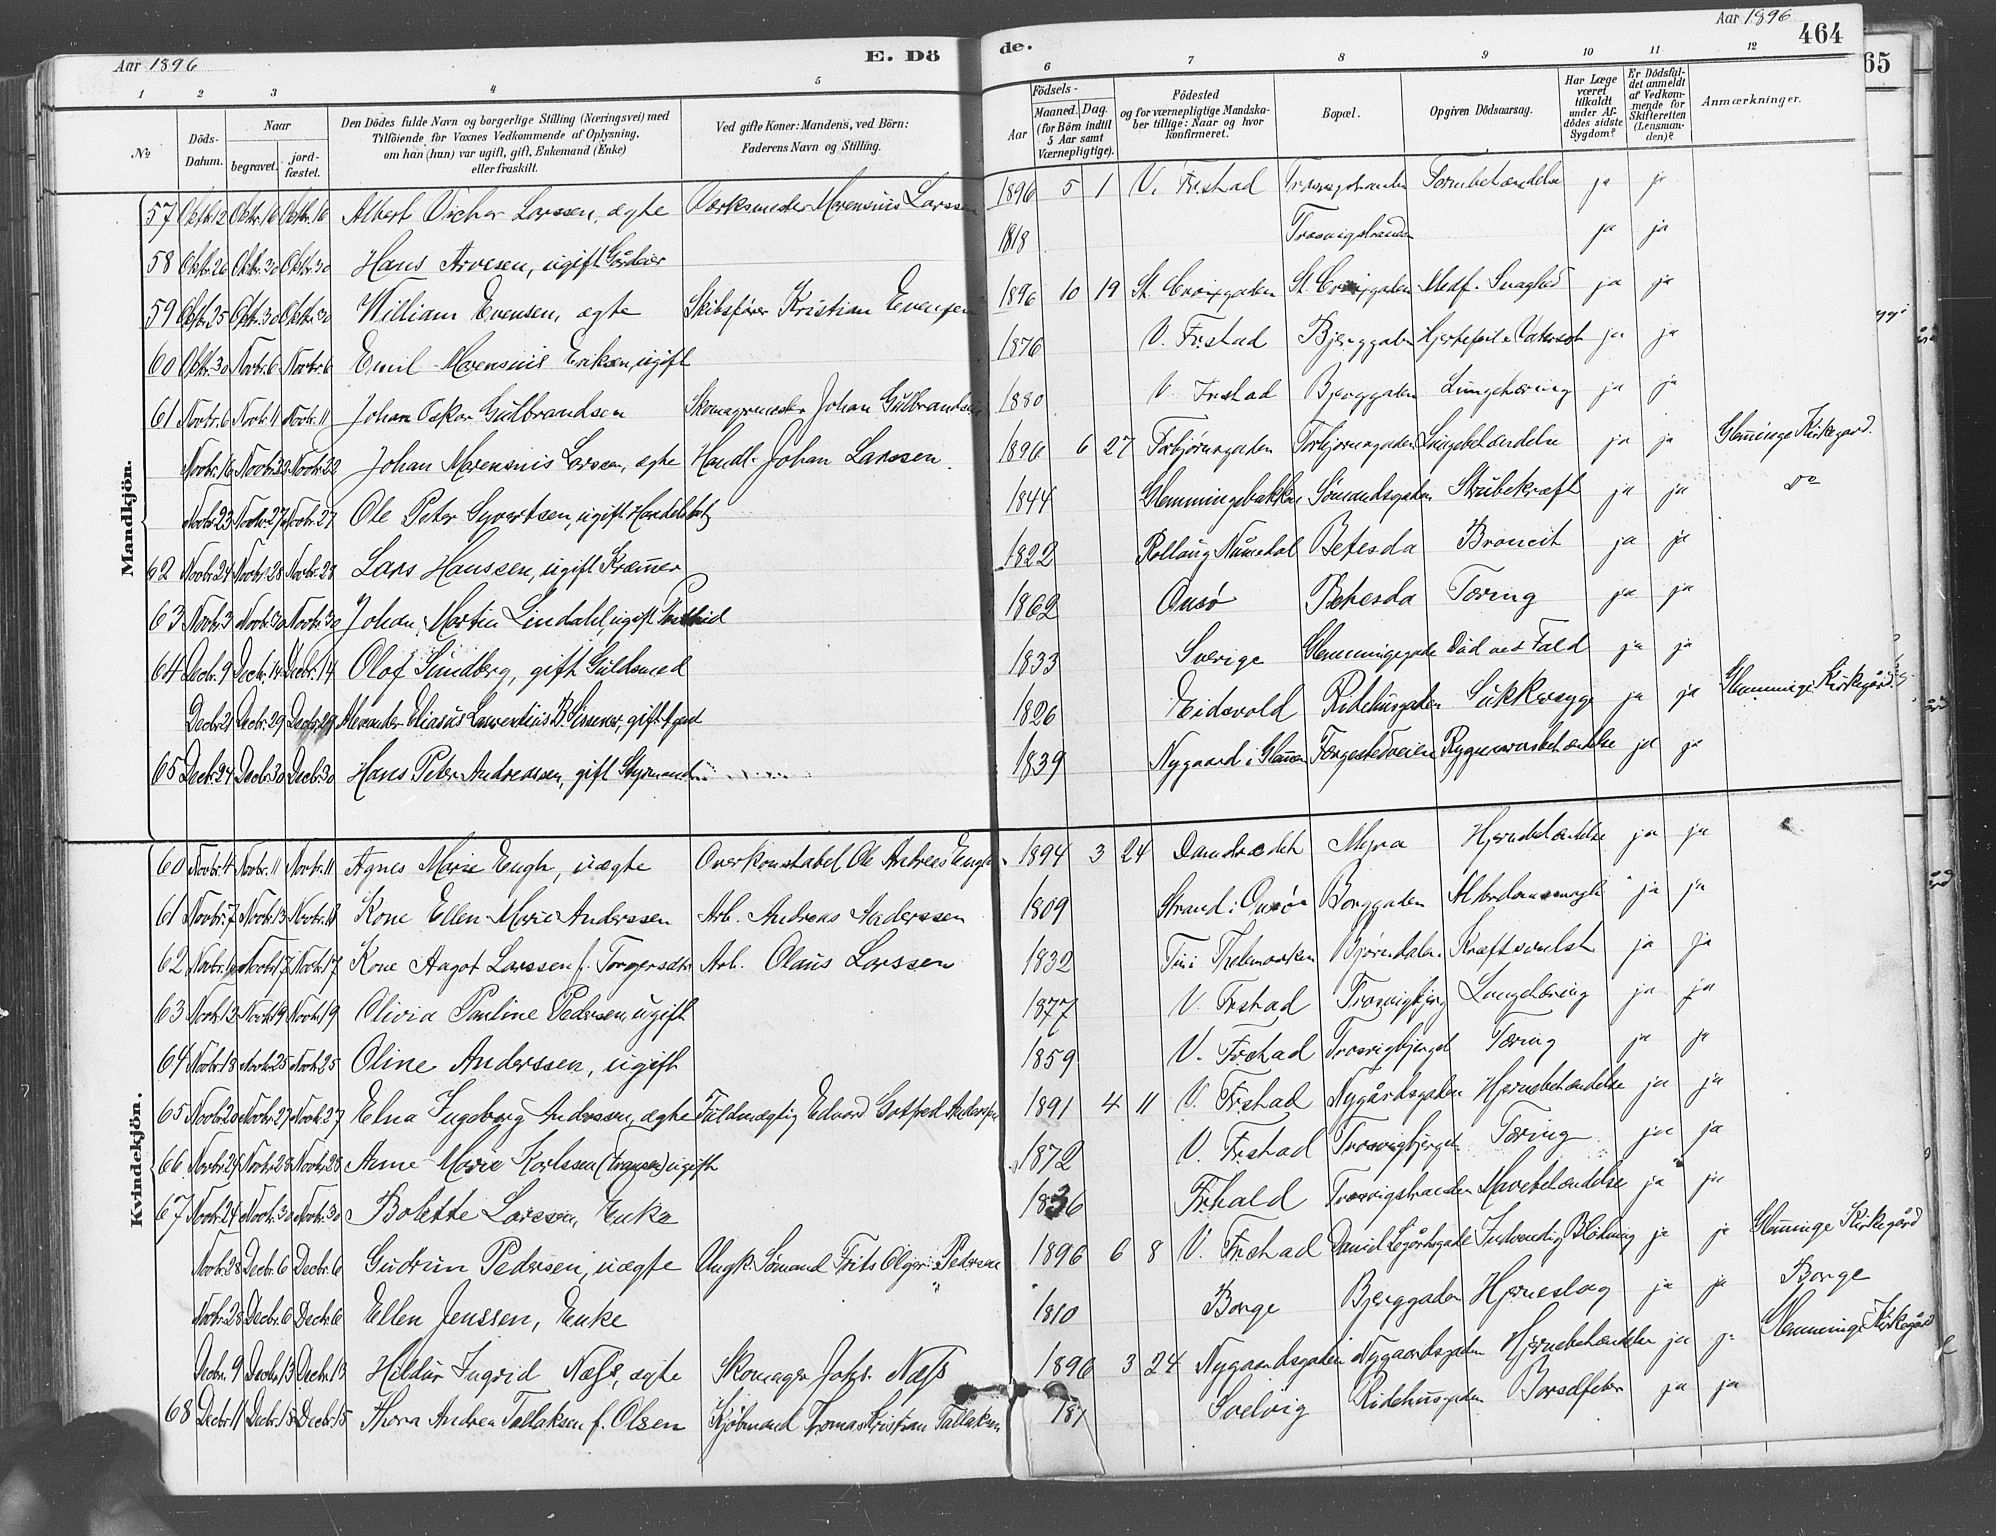 Aar 1896
E. Döde.
Aar 1896
464
65
1 2 3 4 5 6 7 8 9 10 11 12
№
Döds-Datum.
Naar
begravet.
jordfæstet.
Den Dödes fulde Navn og borgerlige Stilling (Næringsvei) med Tilföiende for Voxnes Vedkommende af Oplysning, om han (hun) var ugift, gift, Enkemand (Enke) eller fraskilt.
Ved gifte Koner: Mandens, ved Börn: Faderens Navn og Stilling.
Födsels-
Aar
Maaned. Dag.
(for Börn indtil 5 Aar samt Værnepligtige).
Födested og for værnepligtige Mandskaber tillige: Naar og hvor konfirmeret.
Bopæl.
Opgiven Dödsaarsag.
Har Læge været tilkaldt under Afdödes sidste Sygdom?
Er Dödsfaldet anmeldt af Vedkommende for Skifteretten (Lensmanden)?
Anmærkninger.
Mandkjön.
57 Oktb. 12 Oktbr. 16 Oktbr. 16 Albert Victor Larssen, ægte Værksmester Marensius Larssen 1896 5 1 V. Frstad Trosvigstranden Tarmbetændelse ja ja
58 Oktbr. 20 Oktb. 30 Oktb. 30 Hans Arvesen, ugift Gårdeier 1818 Trosvigstranden ja ja
59 Oktbr. 25 Oktbr. 30 Oktbr. 30 William Evensen, ægte Skibsfører Kristian Evensen 1896 10 19 St. Croixgaden St. Croixgaden Medf. Svaghed ja ja
60 Oktbr. 30 Novbr. 6 Novbr. 6 Emil Marensius Eriksen, ugift 1876 V. Frstad Bjerggaden Hjertefeil o. Vatersot ja ja
61 Novbr. 6 Novbr. 11 Novbr. 11 Johan Oskar Gulbrandsen Skomagermester Johan Gulbrandsen 1880 V. Frstad Bjerggaden Lungetæring ja ja
Novbr. 16 Novbr. 22 Novbr. 22 Johan Marensius Larsen, ægte Handl. Johan Larssen 1896 6 27 Torbjørnsgaden Torbjørnsgaden Lungebetændelse ja ja Glemminge Kirkegård.
Novbr. 23 Novbr. 27 Novbr. 27 Ole Peter Syvertsen, ugift Handelsbetj. 1844 Glemmingebakken Sömandsgaden Strubekræft ja ja do
62 Novbr. 24 Novbr. 28 Novbr. 28 Lars Hanssen, ugift Kræmer 1822 Rollaug Numedal Betesda Broncit ja ja
63 Novbr. 3 Novbr. 30 Novbr. 30 Johan Martin Lindahl, ugift 1862 Onsö Betesda Tæring ja ja
64 Decbr. 9 Decbr. 14 Decbr. 14 Olof Sundberg, gift Guldsmed 1833 Sverige Glemmingegade Död ved Fald ja ja
Decbr. 21 Decbr. 29 Decbr. 29 Alexander Eliasus Laurentius B. Sissener, gift Agent 1826 Eidsvold Ridehusgaden Sukkersyge ja ja Glemminge Kirkegård
65 Decbr. 24 Decbr. 30 Decbr. 30 Hans Peter Andreassen, gift Styrmand 1839 Nygaard i Glemm. Færgestedveien Rygmarvsbetændelse ja ja
Kvindekjön.
60 Novbr. 4 Novbr. 11 Novbr. 11 Agnes Marie Engh, uægte Overkonstabel Ole Andreas Engh 1894 3 24 Damstrædet Myra Hjernebetændelse ja ja
61 Novbr. 7 Novbr. 13 Novbr. 13 Kone Ellen Marie Anderssen Arb. Andreas Anderssen 1809 Strand i Onsö Borggaden Alderdomssvaghed ja ja
62 Novbr. 10 Novbr. 17 Novbr. 17 Kone Aagot Larssen f. Torgersdtr. Arb. Olaus Larssen 1832 Tin i Thelemarken Bjørndalen Kræftsvulst ja ja
63 Novbr. 13 Novbr. 19 Novbr. 19 Olivia Pauline Pedersen, ugift 1877 V. Frstad Trosvigbjerg Lungetæring ja ja
64 Novbr. 18 Novbr. 25 Novbr. 25 Oline Anderssen, ugift 1859 V. Frstad Trosvigbjerget Tæring ja ja
65 Novbr. 20 Novbr. 27 Novbr. 27 Elna Ingeborg Anderssen, ægte Fuldmægtig Edvard Gotfred Anderssen 1891 4 11 V. Frstad Nygårdsgaden Hjernebetændelse ja ja
66 Novbr. 24 Novbr. 28 Novbr. 28 Anne Marie Karlssen () ugift 1872 V. Frstad Trosvigbjerget Tæring ja ja
67 Novbr. 24 Novbr. 30 Novbr. 30 Bolette Larssen, Enke 1836 Frhald Trosvigstranden Mavebetændelse ja ja
Novbr. 28 Decbr. 6 Decbr. 6 Gudrun Pedersen, uægte Ungk. Sömand Frits Olger Pedersen 1896 6 8 V. Frstad David Legårdsgade Indvendig Blödning ja ja Glemminge Kirkegård
Novbr. 28 Decbr. 6 Decbr. 6 Ellen Jenssen, Enke " 1810 Borge Bjerggaden Hjerneslag ja ja Borge
Decbr. 9 Decbr. 13 Decbr. 13 Hildur Ingrid Næss, ægte Skomager Johs. Næss 1896 3 24 Nygaardsgaden Nygaardsgaden Hjernebetændelse ja ja Glemminge Kirkegård
68 Decbr. 11 Decbr. 15 Decbr. 15 Thora Andrea Tallaksen f. Olsen Kjöbmand Thomas Kristian Tallaksen 187 Svelvig Ridehusgaden Barselfeber ja ja